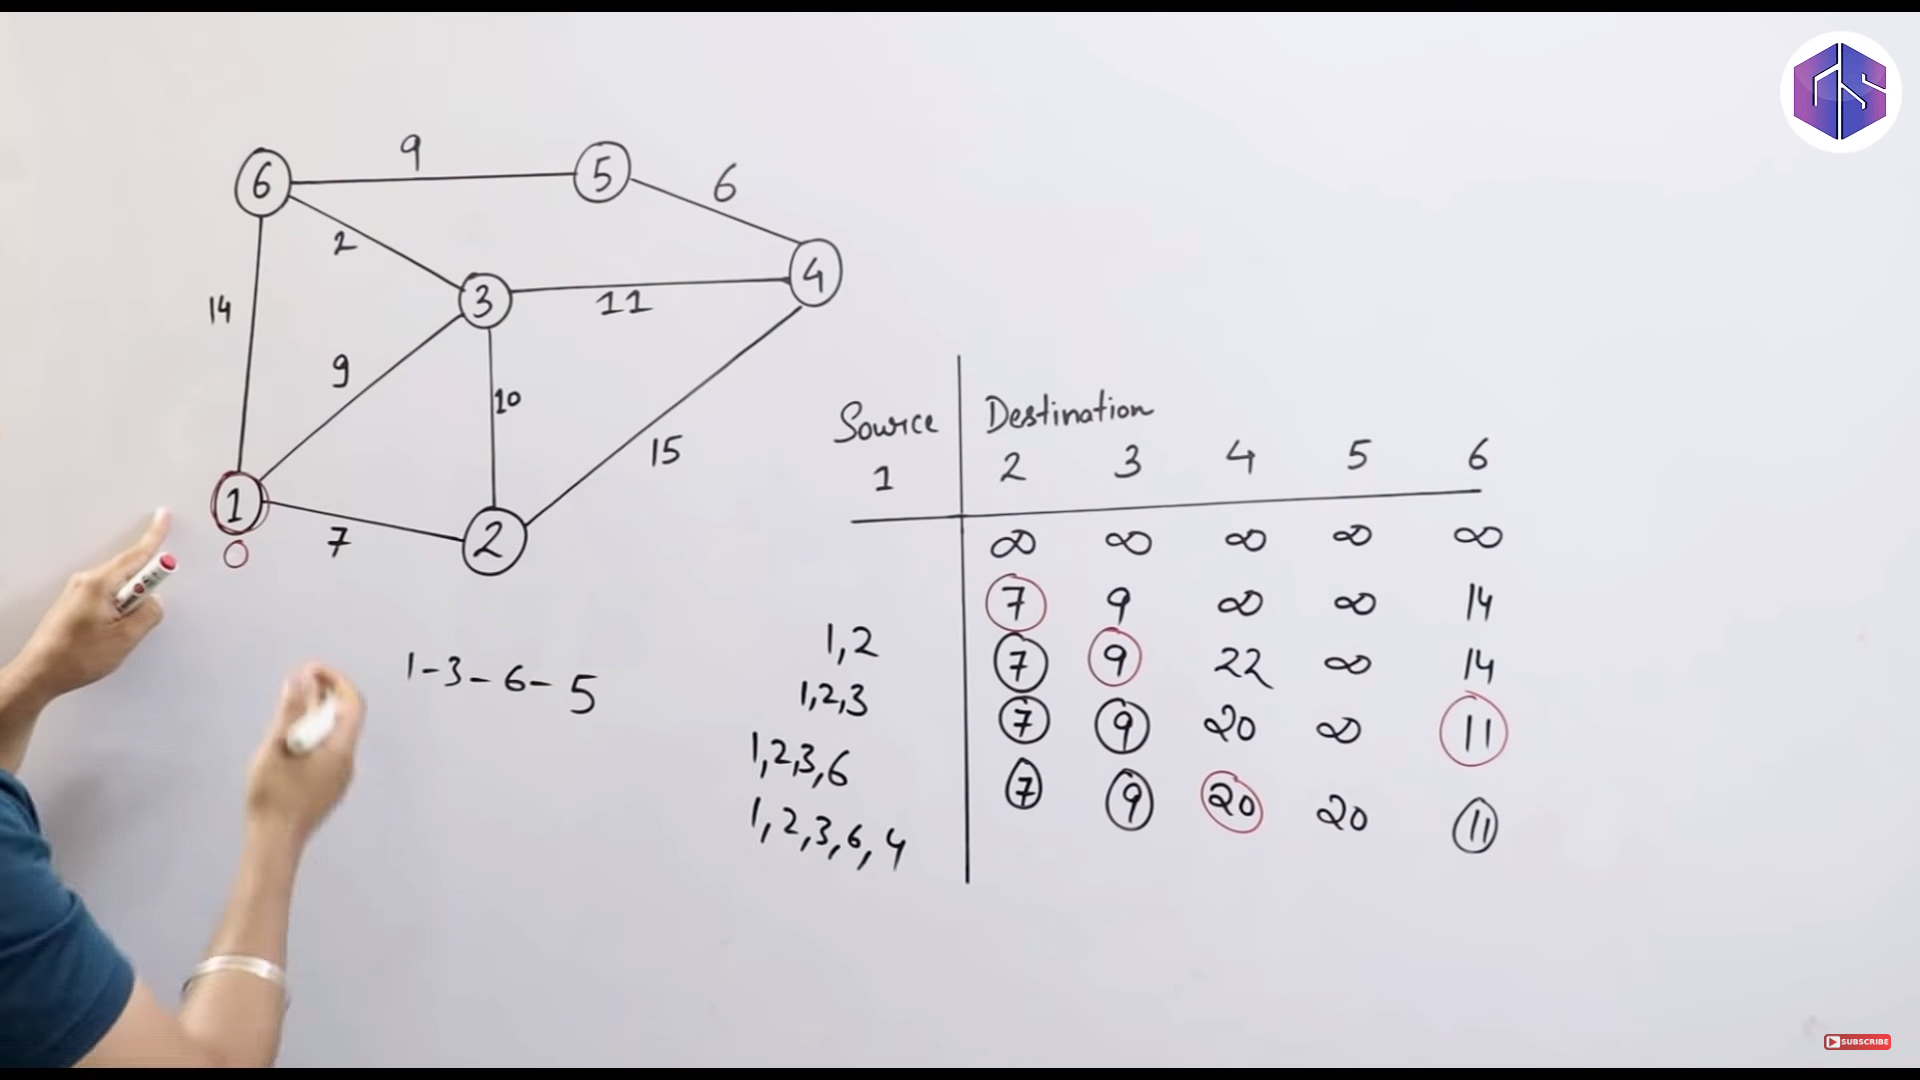 9
6
5
6
2
4
3
11
14
9
10
15
1
7
2
0
1-3-6-5
Source Destination
1 2 3 4 5 6
∞ ∞ ∞ ∞ ∞
7 9 ∞ ∞ 14
1,2 7 9 22 ∞ 14
1,2,3 7 9 20 ∞ 11
1,2,3,6 7 9 20 20 11
1,2,3,6,4
SUBSCRIBE